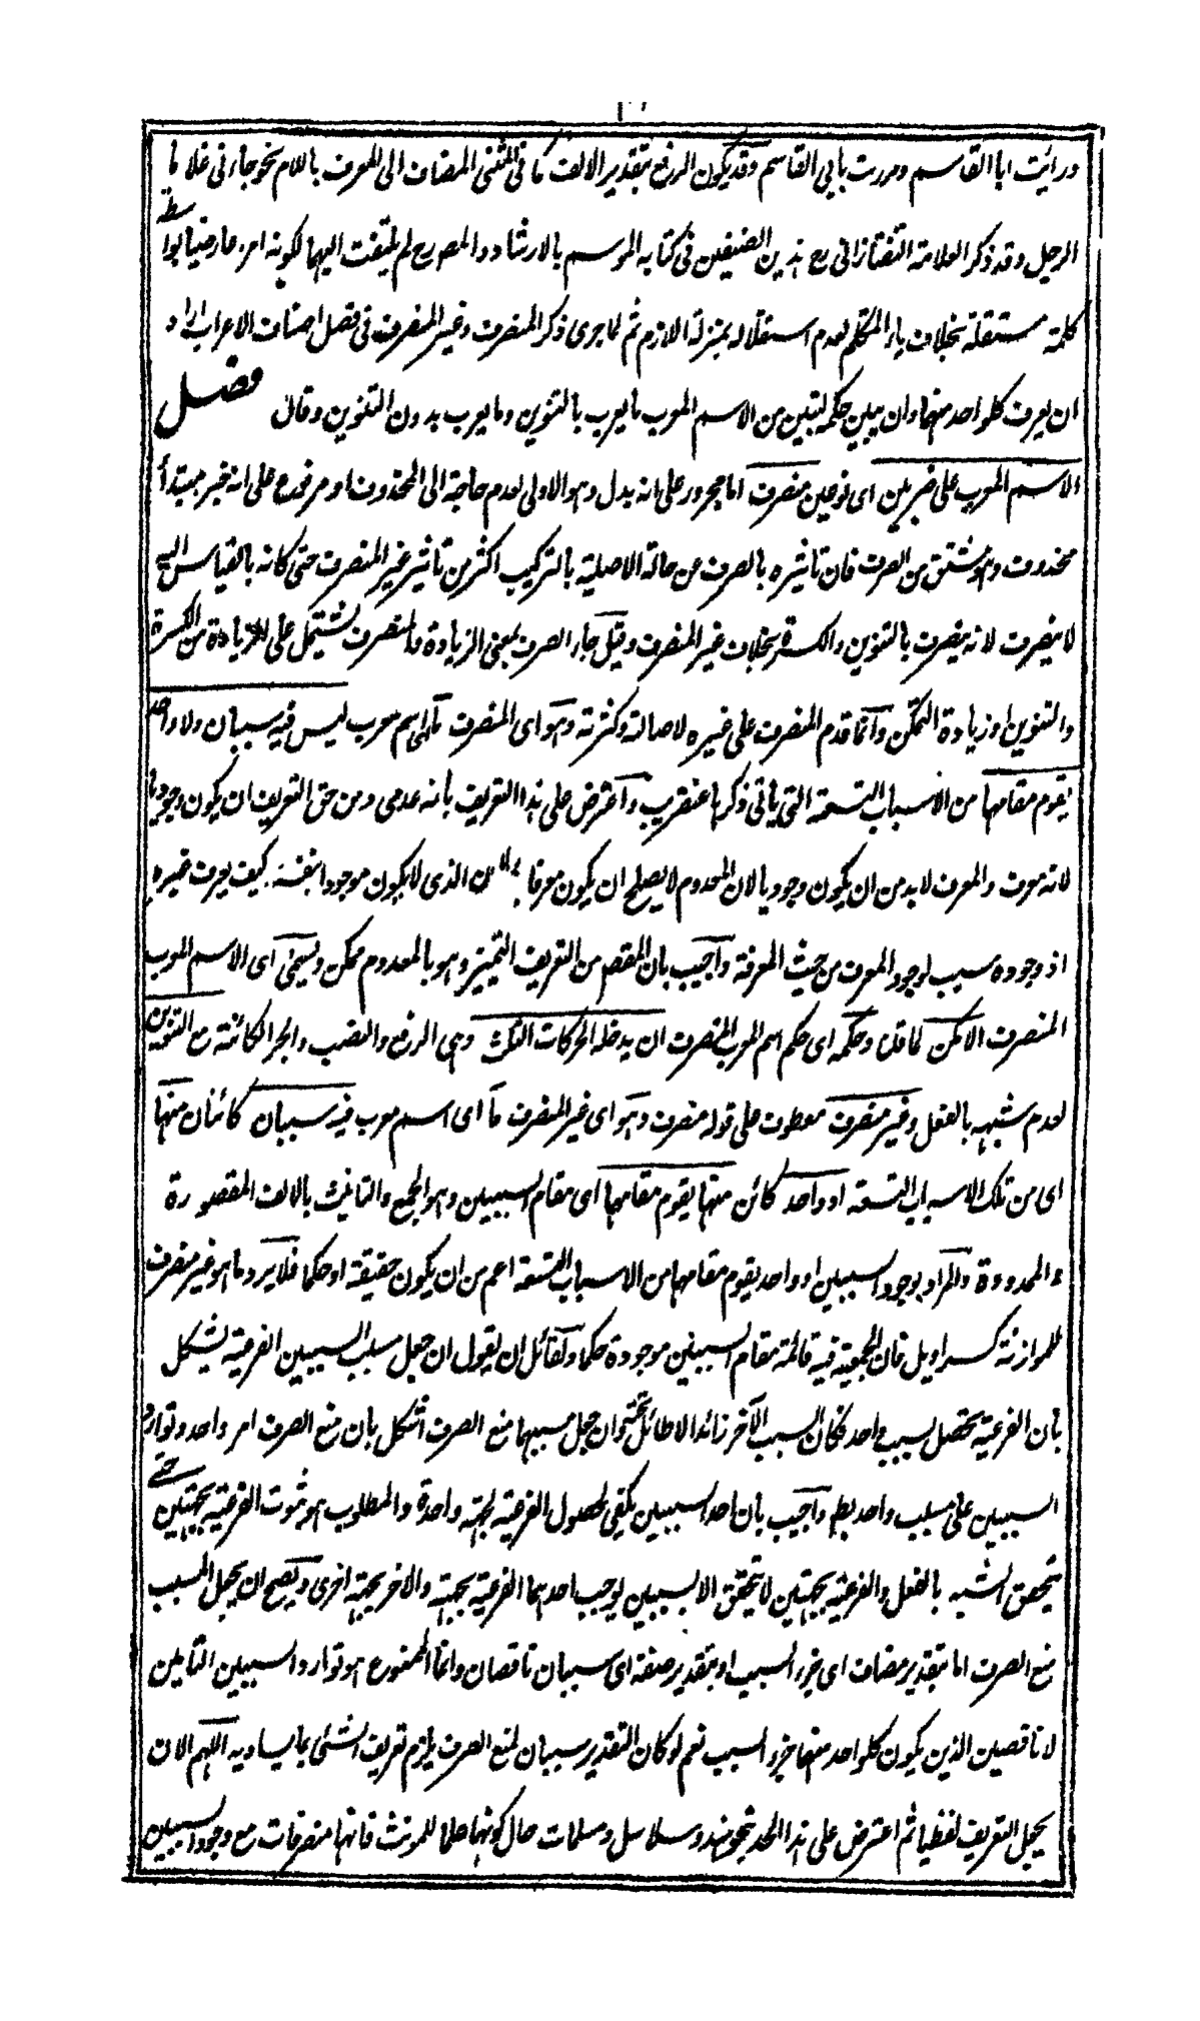 ورأيت ابا القاسم ومررت بابي القاسم وقد يكون الرفع بتقدير الالف كما فى المثنى المضاف الى المعرف باللام نحو جاءنى غلاما
الرجل وقد ذكر العلامة التفتازانى رح هذين الصنفين فى كتابه الموسم بالارشاد والمصرح لم يلتفت اليهما لكونه امرا عارضيا بواسطة
كلمة مستقلة بخلاف ياء المتكلم لعدم استقلاله بمنزلة اللازم ثم لما جرى ذكر المنصرف وغير المنصرف فى فصل اصناف الاعراب اراد
ان يعرف كلواحد منهما وان يبين حكمه ليتبين من الاسم المعرب ما يعرب بالتنوين وما يعرب بدون التنوين وقال فصل
الاسم المعرب على ضربين اى نوعين منصرف اما مجرور على انه بدل وهو الاولى لعدم حاجة الى المحذوف او مرفوع على انه خبر مبتدأ
محذوف وهو مشتق من الصرف فان تاثيره بالصرف عن حالة الاصلية بالتركيب اكثر من تاثير غير المنصرف حتى كانه بالقياس اليه
لا ينصرف لانه ينصرف بالتنوين والكسرة بخلاف غير المنصرف وقيل جاء الصرف بمعنى الزيادة والمنصرف يشتمل على الزيادة من الكسرة
والتنوين او زيادة التمكن وانما قدم المنصرف على غيره لاصالته وكثرته وهو اى المنصرف ما اى اسم معرب ليس فيه سببان ولا واحد
يقوم مقامهما من الاسباب التسعة التى ياتى ذكرها عنقريب واعترض على هذا التعريف بانه عدمى ومن حق التعريف ان يكون وجوديا
لانه معرف والمعرف لابد من ان يكون وجوديا لان المعدوم لا يصلح ان يكون معرفا لان الذى لا يكون موجودا بنفسه كيف يعرف غيره
اذ وجوده سبب لوجود المعرف من حيث المعرفة واجيب بان المقصم من التعريف التميز وهو بالمعدوم ممكن ويسمى اى الاسم المعرب
المنصرف الامكن لما قلنا وحكمه اى حكم اسم المعرب المنصرف ان يدخله الحركات الثلث وهى الرفع والنصب والجر الكائنة مع التنوين
لعدم شبهه بالفعل وغير منصرف معطوف على قوله منصرف وهو اى غير المنصرف ما اى اسم معرب فيه سببان كائنان منها
اى من تلك الاسباب التسعة او واحد كائن منها يقوم مقامهما اى مقام السببين وهو الجمع والتانيث بالالف المقصورة
والممدودة والمراد بوجود السببين او واحد يقوم مقامهما من الاسباب التسعة اعم من ان يكون حقيقة او حكما فلا يرد ما هو غير منصرف
للموازنة كسراويل فان الجمعية فيه قائمة مقام السببين موجودة حكما ولقائل ان يقول ان جعل مسبب السببين الفرعية يشكل
بان الفرعية تحصل بسبب واحد فكان السبب الآخر زائدا لا طائل تحته وان جعل مسببهما منع الصرف اشكل بان منع الصرف امر واحد وتوارد
السببين على مسبب واحد بط واجيب بان احد السببين يكفى لحصول الفرعية بجهة واحدة والمطلوب هو ثبوت الفرعية بجهتين حتى
يتحقق الشبه بالفعل والفرعية بجهتين لا يتحقق الا بسببين يوجب احدهما الفرعية بجهة والاخر بجهة اخرى ويصح ان يجعل المسبب
منع الصرف اما بتقدير مضاف اى جزء السبب او بتقدير صفة اى سببان ناقصان وانما الممنوع هو توارد السببين التامين
لا ناقصين الذين يكون كلواحد منهما جزء السبب نعم لو كان التقدير سببان لمنع الصرف يلزم تعريف الشئ بما يساويه اللهم الا ان
يجعل التعريف لفظيا ثم اعترض على هذا الحد بنحو هند وسلاسل ومسلمات حال كونها علما للمونث فانها منصرفات مع وجود السببين